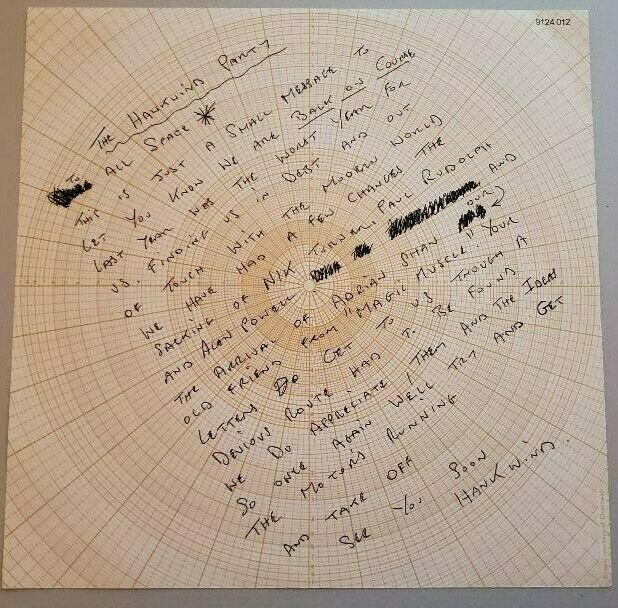 9124 012
THE HAWKWIND PARTY
TO ALL SPACE
THIS IS JUST A SMALL MESSAGE TO
LET YOU KNOW WE ARE BACK ON COURSE
LAST YEAR WAS THE WORST YEAR FOR
US. FINDING US IN DEBT AND OUT
OF TOUCH WITH THE MODERN WORLD
WE HAVE HAD A FEW CHANGES THE
SACKING OF NIK TURNER. PAUL RUDOLPH
AND ALAN POWELL AND
THE ARRIVAL OF ADRIAN SHAW OUR
OLD FRIEND FROM "MAGIC MUSCLE". YOUR
LETTERS DO GET TO US THOUGH A
DEVIOUS ROUTE HAD TO BE FOUND
WE DO APPRECIATE THEM AND THE IDEAS
SO ONCE AGAIN WE'LL TRY AND GET
THE MOTORS RUNNING
AND TAKE OFF
SEE YOU SOON
HAWKWIND.